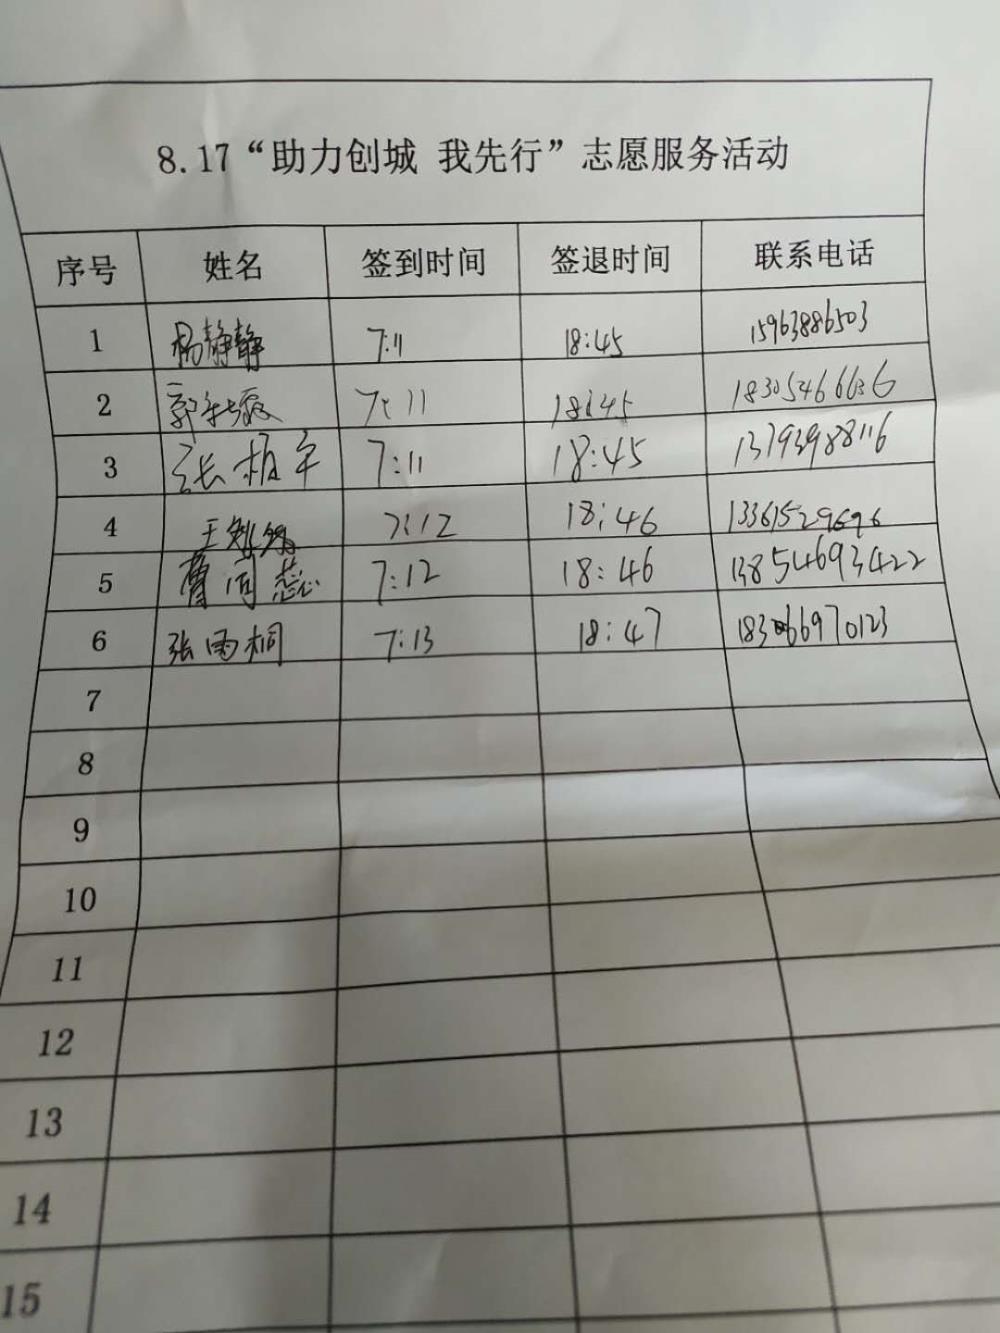 8.17“助力创城 我先行”志愿服务活动
序号 姓名 签到时间 签退时间 联系电话
1 杨静静 7:11 18:45 15963886503
2 郭 7:11 18:45 18305466636
3 张 7:11 18:45 13793988116
4 王 7:12 18:46 13361529696
5 曹同蕊 7:12 18:46 13854693422
6 张雨桐 7:13 18:47
7
8
9
10
11
12
13
14
15